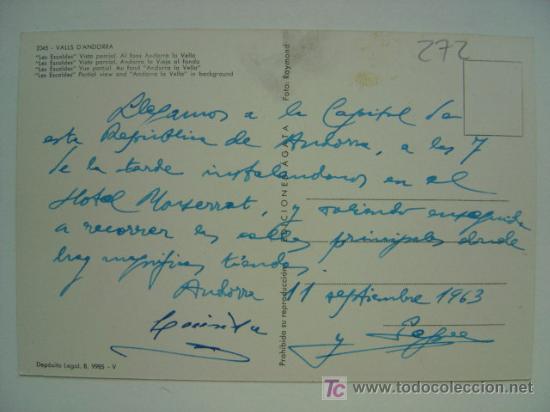 2045 - VALLS D'ANDORRA
"Les Escaldes" Vista parcial. Al fons Andorra la Vella
"Les Escaldes" Vista parcial. Andorra la Vieja al fondo
"Les Escaldes" Vue partial. Au fond "Andorra la Vella"
"Les Escaldes" Partial view and "Andorra la Vella" in background
272
Llegamos a la Capital de
esta República de Andorra, a las 7
de la tarde instalándonos en el
Hotel Monserrat, y saliendo enseguida
a recorrer las calles principales donde
hay magníficas tiendas.
Andorra 11 septiembre 1963
y Pepe
Prohibida su reproducción
EDICIONES AGATA
Foto: Raymond
Depósito Legal, B. 9985 - V
todocoleccion
www.todocoleccion.net